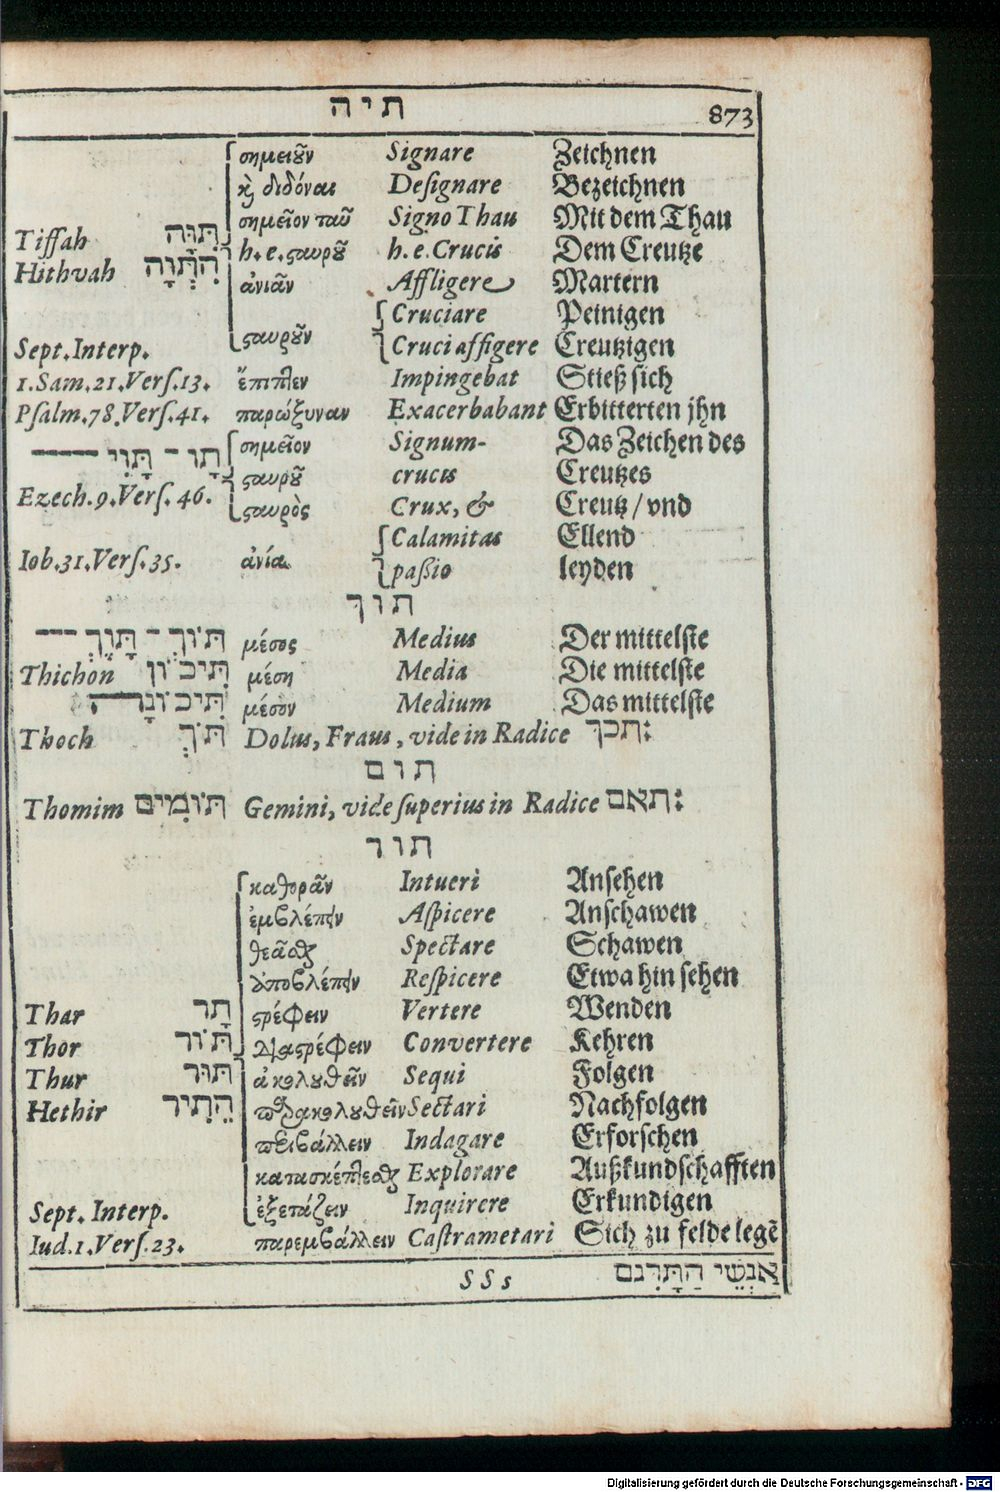 תיה 873
σημειοῦν Signare Zeichnen
κ̀ διδόναι Deſignare Bezeichnen
σημεῖον ταῦ Signo Thau Mit dem Thau
Tiſſah תִּוָּה h.e. ςαυροῦ h.e. Crucis Dem Creutze
Hithvah הִתְוָה ἀνιᾶν Affligere Martern
Cruciare Peinigen
Sept. Interp. ςαυροῦν Cruci affigere Creutzigen
1. Sam. 21. Verſ. 13. ἔπιπτεν Impingebat Stieß ſich
Pſalm. 78. Verſ. 41. παρώξυναν Exacerbabant Erbitterten jhn
תָּו – תָּוִי σημεῖον Signum- Das Zeichen des
ςαυροῦ crucis Creutzes
Ezech. 9. Verſ. 46. ςαυρὸς Crux, & Creutz / vnd
Calamitas Ellend
Iob. 31. Verſ. 35. ἀνία paßio leyden
תוך
תּוֹךְ – תָּוֶךְ μέσος Medius Der mittelſte
Thichon תִּיכוֹן μέση Media Die mittelſte
תִּיכוֹנָה μέσον Medium Das mittelſte
Thoch תּוֹךְ Dolus, Fraus, vide in Radice תכך:
תום
Thomim תּוֹמִים Gemini, vide ſuperius in Radice תאם:
תור
καθορᾶν Intueri Anſehen
ἐμβλέπειν Aſpicere Anſchawen
θεᾶσθαι Spectare Schawen
ἀποβλέπειν Reſpicere Etwa hin ſehen
Thar תָּר ςρέφειν Vertere Wenden
Thor תּוֹר διαςρέφειν Convertere Kehren
Thur תּוּר ἀκολουθεῖν Sequi Folgen
Hethir הֵתִיר παρακολουθεῖν Sectari Nachfolgen
περιβάλλειν Indagare Erforſchen
κατασκέπτεσθαι Explorare Außkundſchafften
Sept. Interp. ἐξετάζειν Inquirere Erkundigen
Iud. 1. Verſ. 23. παρεμβάλλειν Caſtrametari Sich zu felde legẽ
S S s אַנְשֵׁי הַתָּרִגם
Digitalisierung gefördert durch die Deutsche Forschungsgemeinschaft - DFG